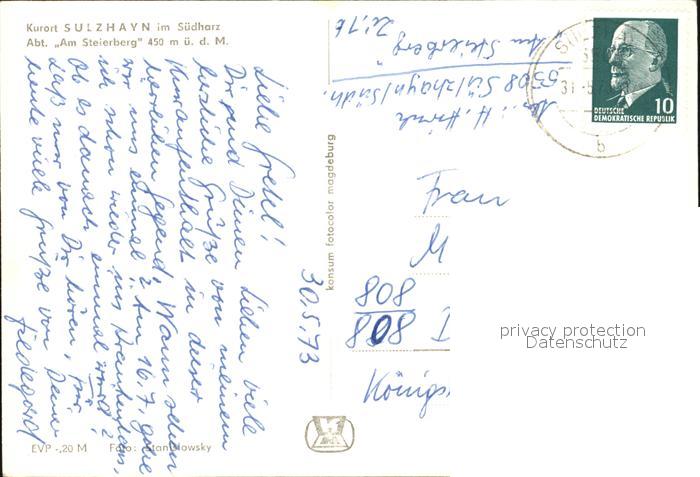 Kurort SULZHAYN im Südharz
Abt. „Am Steierberg" 450 m ü. d. M.
Liebe Gretel!
Dir und Deinen Lieben viele
herzliche Grüße von meinem
Kuraufenthalt in dieser
herrlichen Gegend. Wann sehen
wir uns einmal? Am 16.7. gehe
ich schon wieder ins Krankenhaus,
Ob es danach einmal wird?
Laß mal von Dir hören, für
heute viele Grüße von Deiner
EVP -,20 M Foto: Stanislowsky
30.5.73
konsum fotocolor magdeburg
Abs.: H.
5508 Sülzhayn/Südh.
„Am Steierberg"
DEUTSCHE
DEMOKRATISCHE REPUBLIK
10
31.5
b
Frau
M
808
808
Königs
privacy protection
Datenschutz